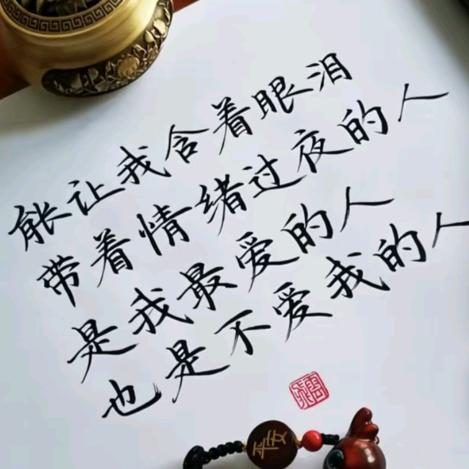 能让我含着眼泪
带着情绪过夜的人
是我最爱的人
也是不爱我的人